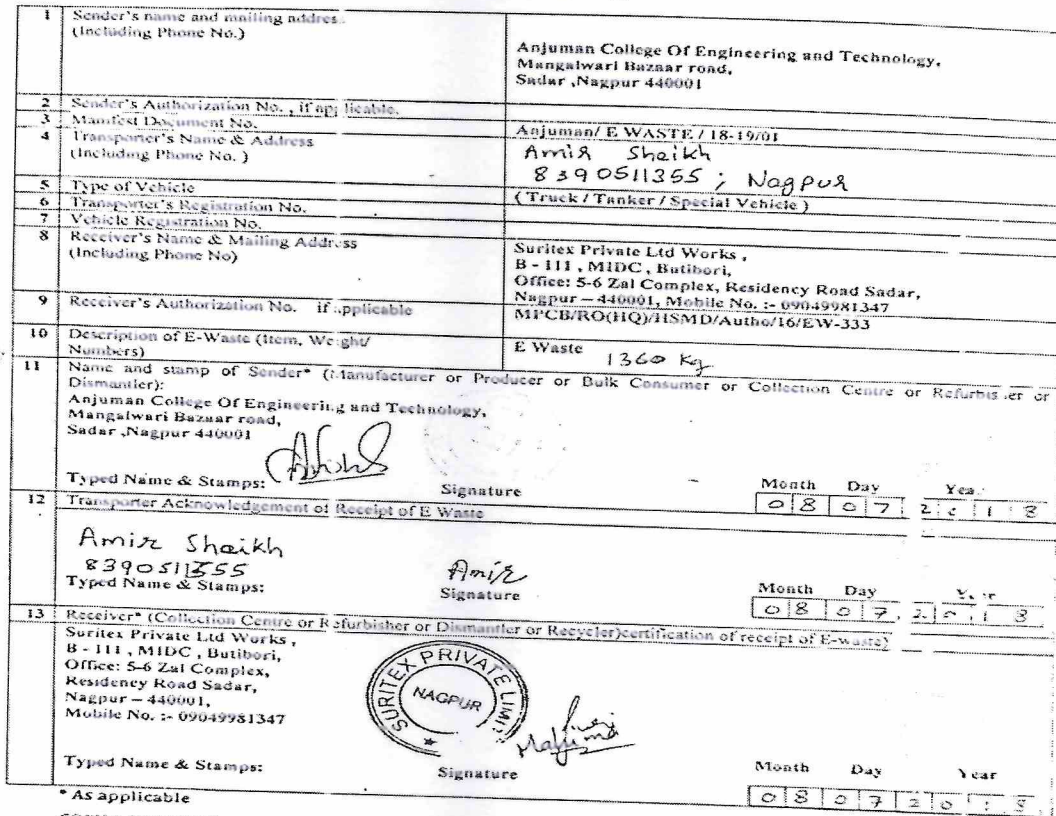 1 Sender's name and mailing addres.
(Including Phone No.)
Anjuman College Of Engineering and Technology,
Mangalwari Bazaar road,
Sadar ,Nagpur 440001
2 Sender's Authorization No. , if applicable.
3 Manifest Document No.
Anjuman/ E WASTE / 18-19/01
4 Transporter's Name & Address
(Including Phone No. )
Amir Sheikh
8390511355 ; Nagpur
5 Type of Vehicle
( Truck / Tanker / Special Vehicle )
6 Transporter's Registration No.
7 Vehicle Registration No.
8 Receiver's Name & Mailing Address
(Including Phone No)
Suritex Private Ltd Works ,
B - 111 , MIDC , Butibori,
Office: 5-6 Zal Complex, Residency Road Sadar,
Nagpur – 440001, Mobile No. :- 09049981347
9 Receiver's Authorization No. if applicable
MPCB/RO(HQ)/HSMD/Autho/16/EW-333
10 Description of E-Waste (Item, Weight/
Numbers)
E Waste 1360 Kg
11 Name and stamp of Sender* (Manufacturer or Producer or Bulk Consumer or Collection Centre or Refurbisher or
Dismantler):
Anjuman College Of Engineering and Technology,
Mangalwari Bazaar road,
Sadar ,Nagpur 440001
Typed Name & Stamps: Signature Month Day Year
08 07 2018
12 Transporter Acknowledgement of Receipt of E Waste
Amir Shaikh
8390511355 Amir
Typed Name & Stamps: Signature Month Day Year
08 07 2018
13 Receiver* (Collection Centre or Refurbisher or Dismantler or Recycler)certification of receipt of E-waste)
Suritex Private Ltd Works ,
B - 111 , MIDC , Butibori,
Office: 5-6 Zal Complex,
Residency Road Sadar,
Nagpur – 440001,
Mobile No. :- 09049981347
SURITEX PRIVATE LIMI
NAGPUR
Typed Name & Stamps: Signature Month Day Year
08 07 2018
* As applicable